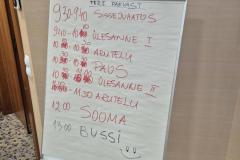 TERE PÄEVAST
9.30-9.40 SISSEJUHATUS
9.40-10 ÜLESANNE I
10 10.30 ARUTELU
10.30 PAUS
ÜLESANNE II
11.30 ARUTELU
12.00 SOOMA
13.00 BUSSI